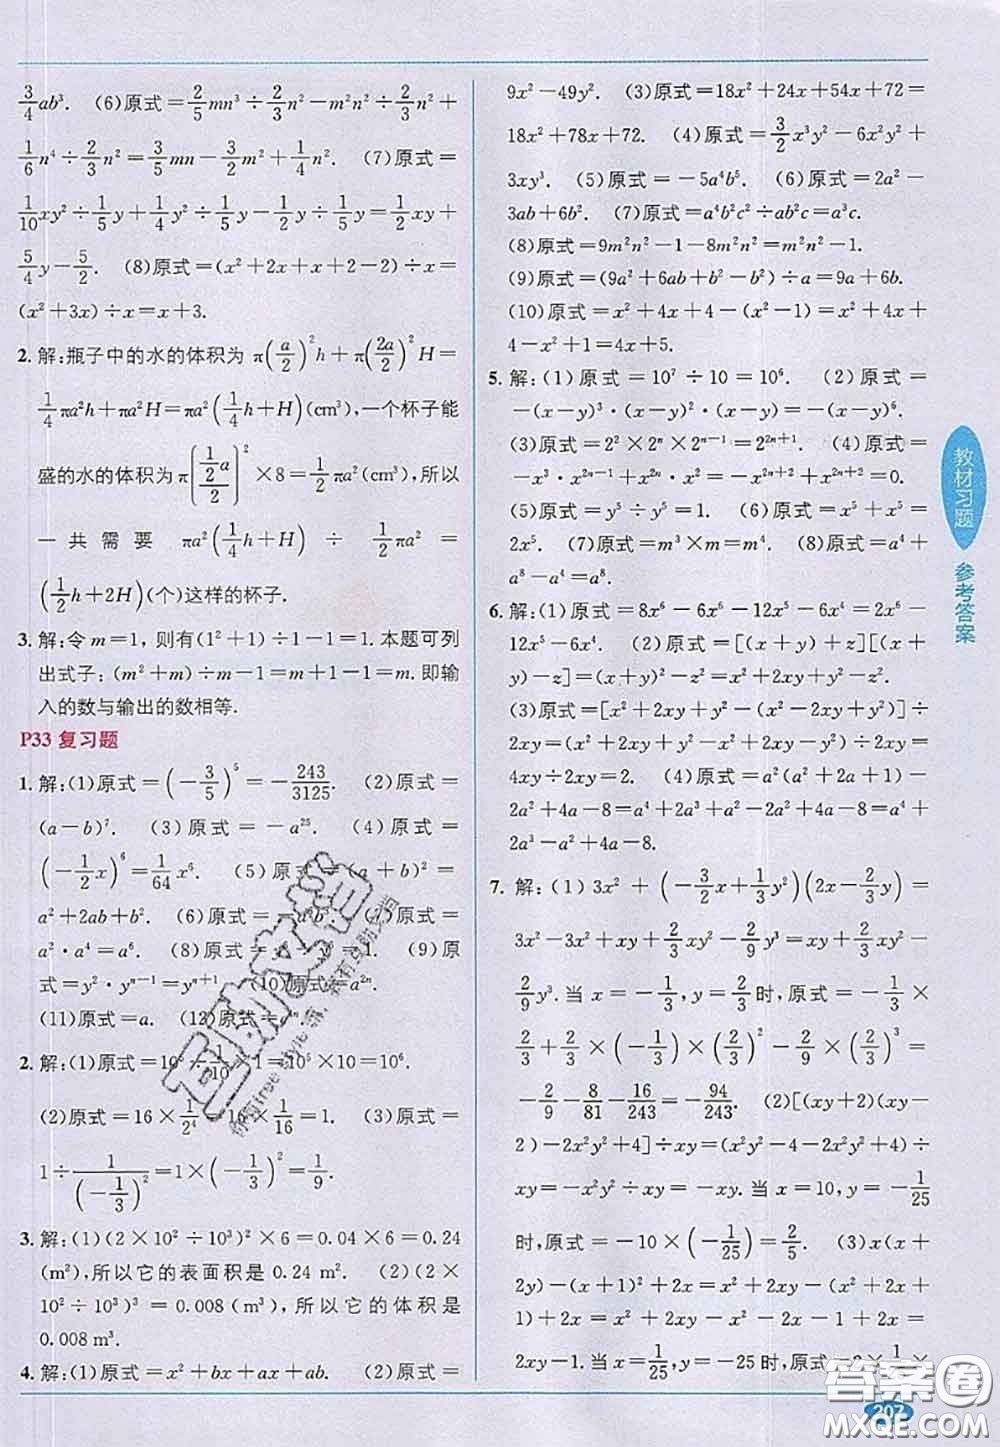 3/4ab³. (6)原式=2/5mn³÷2/3n²−m²n²÷2/3n²+
1/6n⁴÷2/3n²=3/5mn−3/2m²+1/4n². (7)原式=
1/10xy²÷1/5y+1/4y²÷1/5y−1/2y÷1/5y=1/2xy+
5/4y−5/2. (8)原式=(x²+2x+x+2−2)÷x=
(x²+3x)÷x=x+3.
2. 解:瓶子中的水的体积为 π(a/2)²h+π(2a/2)²H=
1/4πa²h+πa²H=πa²(1/4h+H)(cm³),一个杯子能
盛的水的体积为π(1/2a/2)²×8=1/2πa²(cm³),所以
一共需要 πa²(1/4h+H)÷1/2πa²=
(1/2h+2H)(个)这样的杯子.
3. 解:令m=1,则有(1²+1)÷1−1=1.本题可列
出式子:(m²+m)÷m−1=m.即输
入的数与输出的数相等.
P33 复习题
1. 解:(1)原式=(−3/5)⁵=−243/3125. (2)原式=
(a−b)⁷. (3)原式=−a²⁵. (4)原式=
(−1/2x)⁶=1/64x⁶. (5)原式=(a+b)²=
a²+2ab+b². (6)原式=
a²·a⁴=a⁶. (8)原式= 1. (9)原
式=y²·yⁿ⁻¹=yⁿ⁺¹. (10)原式=a²ⁿ.
(11)原式=a. (12)原式=
2. 解:(1)原式=10⁵÷1/10×1=10⁵×10=10⁶.
(2)原式=16×1/2⁴=16×1/16=1. (3)原式=
1÷1/(−1/3)²=1×(−1/3)²=1/9.
3. 解:(1)(2×10²÷10³)²×6=0.04×6=0.24
(m²),所以它的表面积是0.24 m². (2)(2×
10²÷10³)³=0.008(m³),所以它的体积是
0.008 m³.
4. 解:(1)原式=x²+bx+ax+ab. (2)原式=
9x²−49y². (3)原式=18x²+24x+54x+72=
18x²+78x+72. (4)原式=3/2x³y²−6x²y²+
3xy³. (5)原式=−5a⁴b⁵. (6)原式=2a²−
3ab+6b². (7)原式=a⁴b²c²÷ab²c=a³c.
(8)原式=9m²n²−1−8m²n²=m²n²−1.
(9)原式=(9a²+6ab+b²−b²)÷a=9a+6b.
(10)原式=x²+4x+4−(x²−1)=x²+4x+
4−x²+1=4x+5.
5. 解:(1)原式=10⁷÷10=10⁶. (2)原式=
−(x−y)³·(x−y)²·(x−y)=−(x−y)⁶.
(3)原式=2²×2ⁿ×2ⁿ⁻¹=2²ⁿ⁺¹. (4)原式=
−x³·x²ⁿ⁻¹+x²ⁿ·x²=−x²ⁿ⁺²+x²ⁿ⁺²=0.
(5)原式=y⁵÷y⁵=1. (6)原式=x⁵+x⁵=
2x⁵. (7)原式=m³×m=m⁴. (8)原式=a⁴+
a⁸−a⁴=a⁸.
6. 解:(1)原式=8x⁶−6x⁴−12x⁵−6x⁴=2x⁶−
12x⁵−6x⁴. (2)原式=[(x+y)+z][(x+
y)−z]=(x+y)²−z²=x²+2xy+y²−z².
(3)原式=[x²+2xy+y²−(x²−2xy+y²)]÷
2xy=(x²+2xy+y²−x²+2xy−y²)÷2xy=
4xy÷2xy=2. (4)原式=a²(a²+2a+1)−
2a²+4a−8=a⁴+2a³+a²−2a²+4a−8=a⁴+
2a³−a²+4a−8.
7. 解:(1)3x²+(−3/2x+1/3y²)(2x−2/3y)=
3x²−3x²+xy+2/3xy²−2/9y³=xy+2/3xy²−
2/9y³.当x=−1/3,y=2/3时,原式=−1/3×
2/3+2/3×(−1/3)×(2/3)²−2/9×(2/3)³=
−2/9−8/81−16/243=−94/243. (2)[(xy+2)(xy−
2)−2x²y²+4]÷xy=(x²y²−4−2x²y²+4)÷
xy=−x²y²÷xy=−xy.当x=10,y=−1/25
时,原式=−10×(−1/25)=2/5. (3)x(x+
2y)−(x+1)²+2x=x²+2xy−(x²+2x+
1)+2x=x²+2xy−x²−2x−1+2x=
2xy−1.当x=1/25,y=−25时,原式=2×
教材习题
参考答案
207
答案圈
MXQE.COM